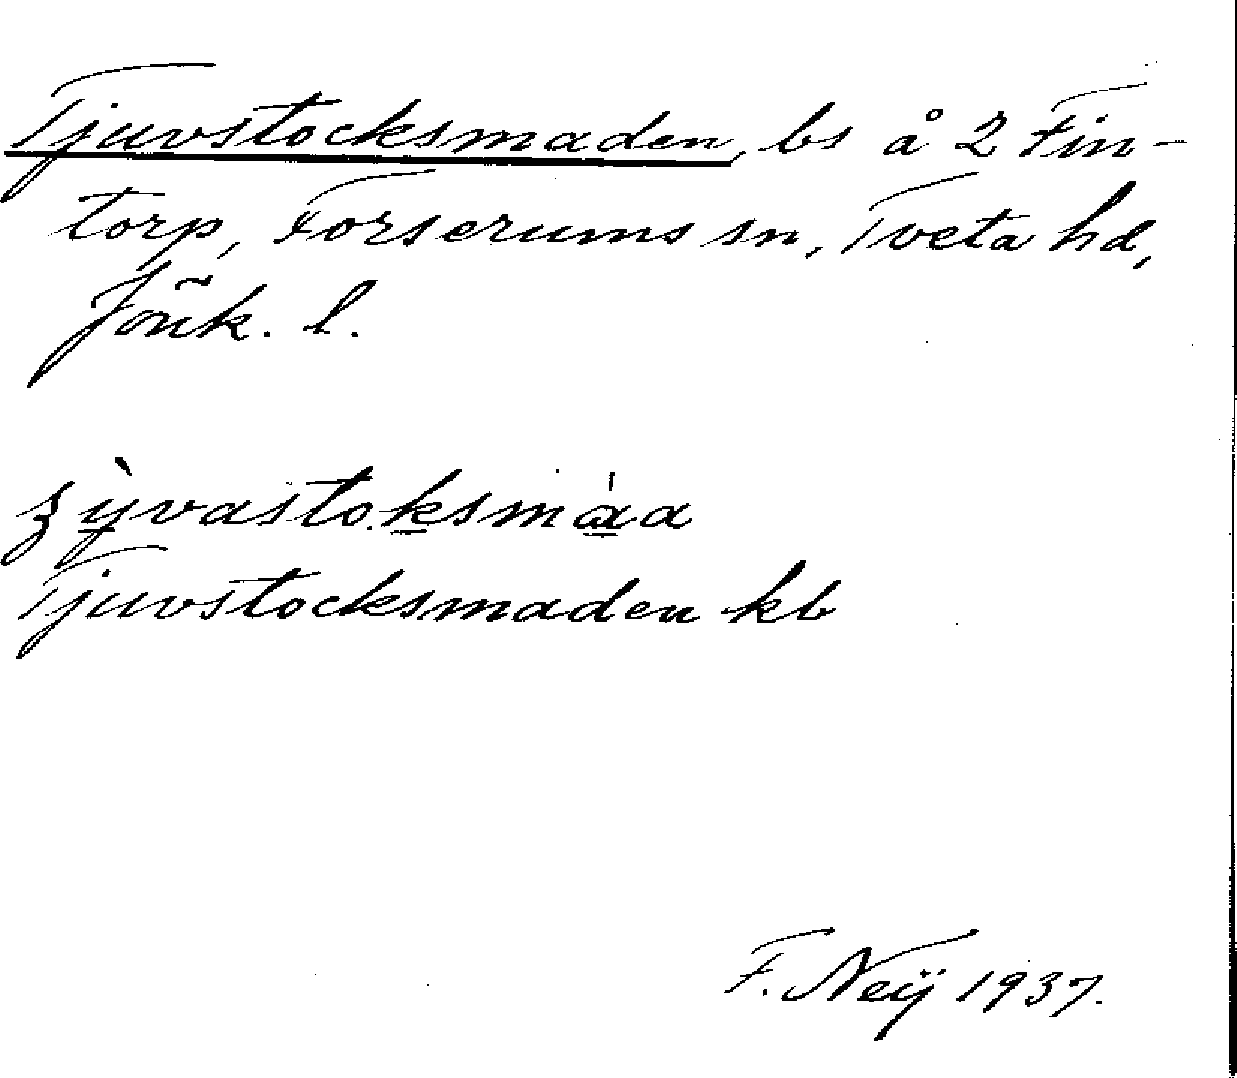 Tjuvstocksmaden, bs å 2 Fin-
torp, Forserums sn, Tveta hd,
Jönk. l.
ʒỳ̠vastok̠sma̠̍a
Tjuvstocksmaden kb
F. Neÿ 1937.